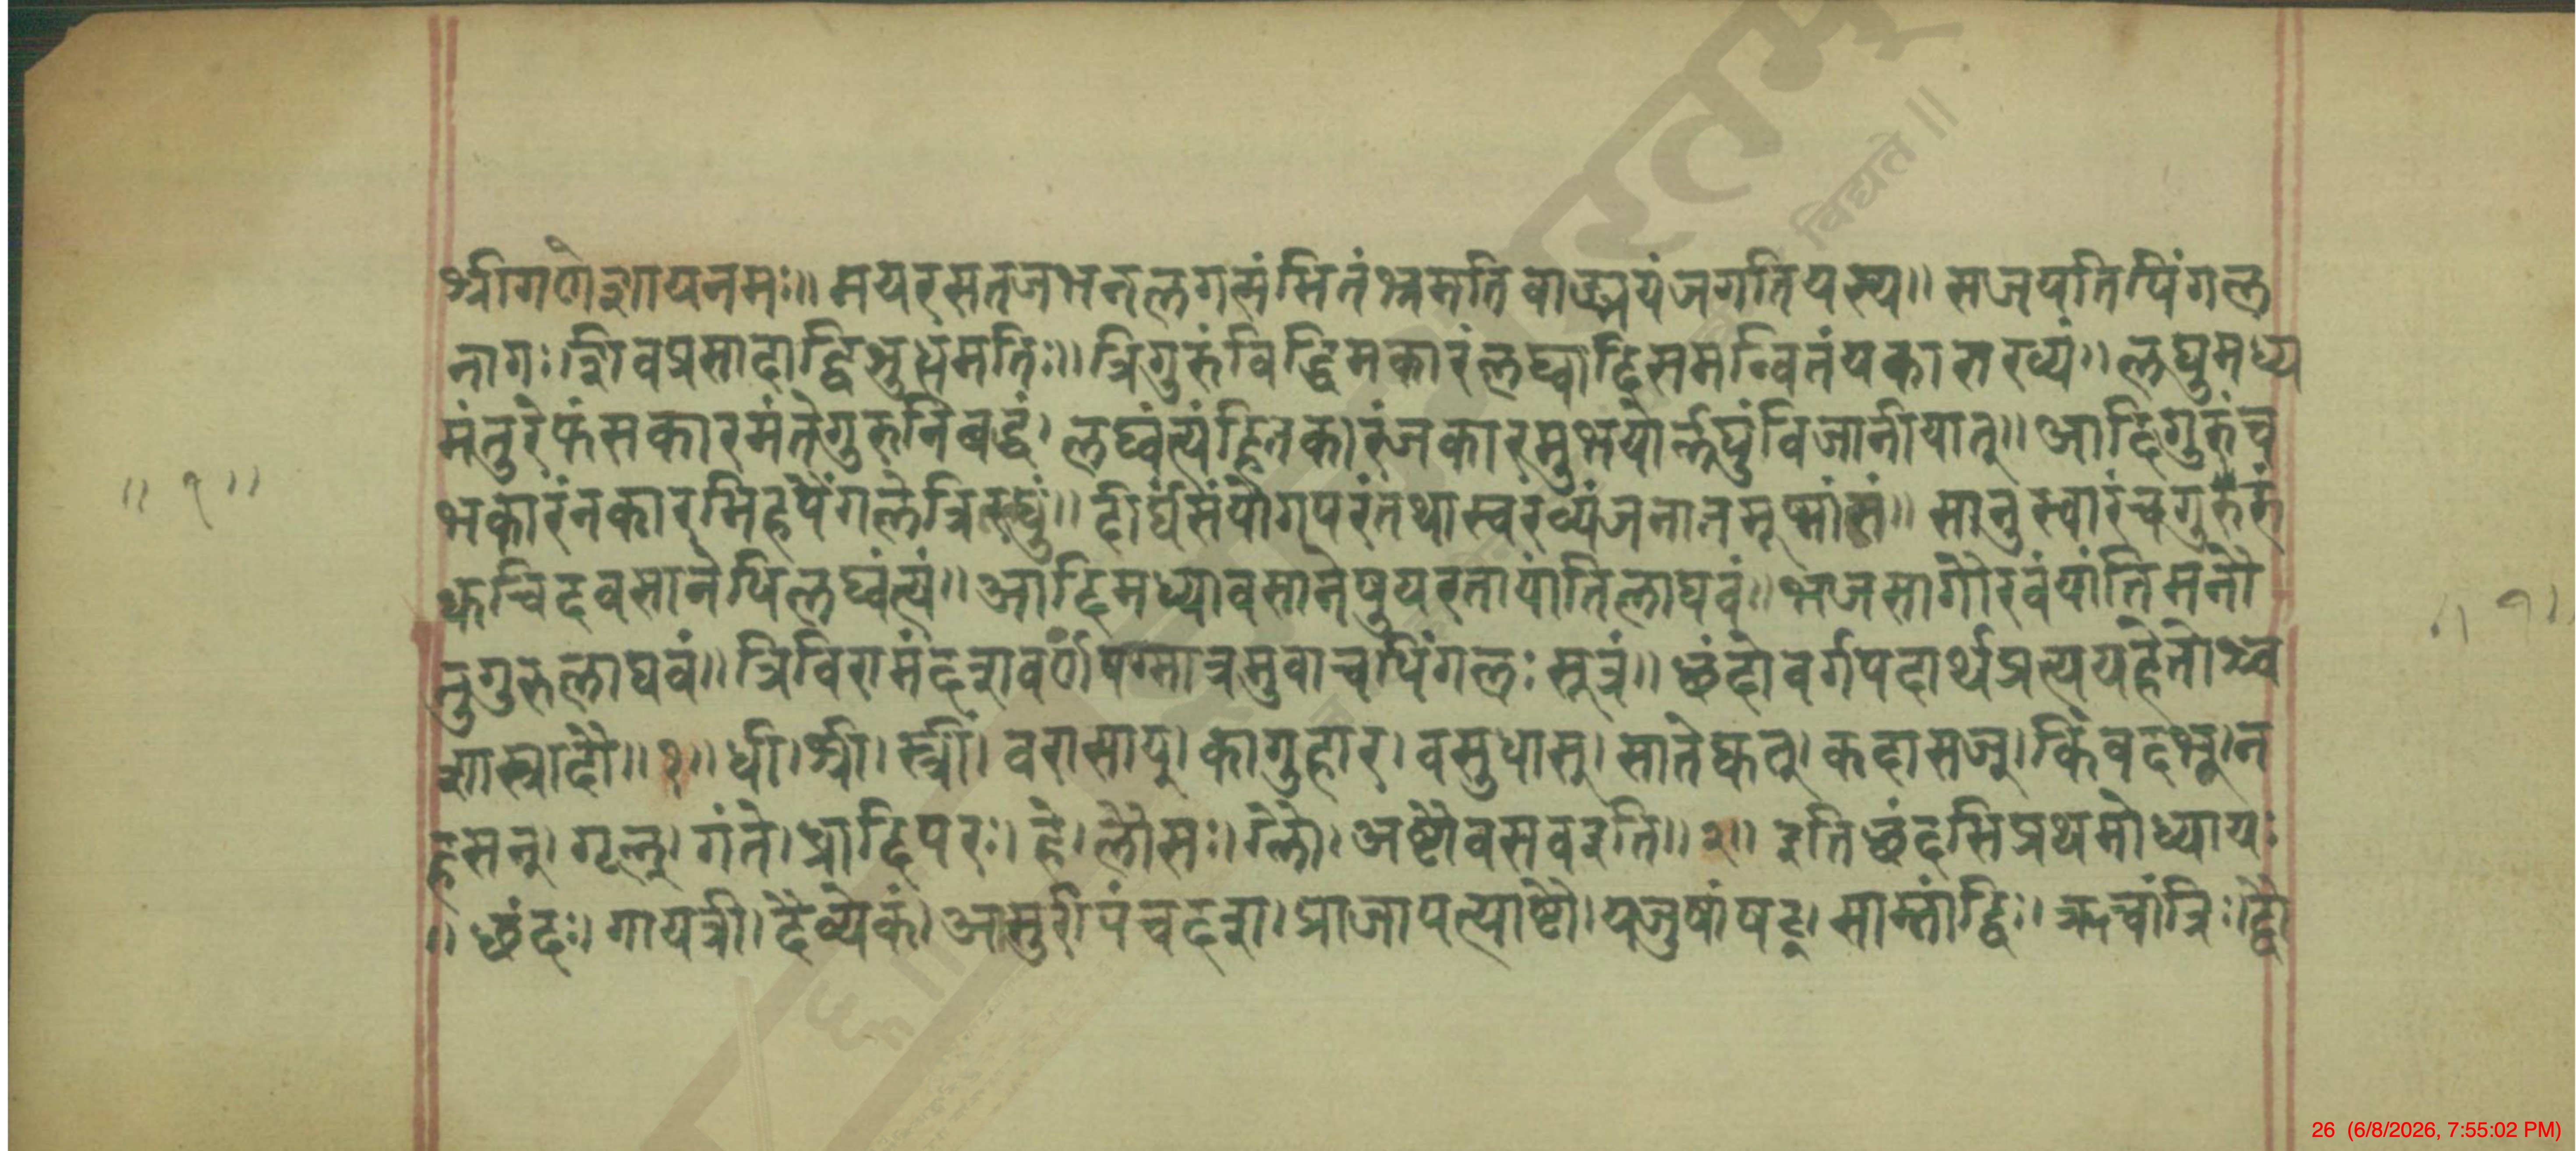 श्रीगणेशायनमः॥ मयरसतजभनलगसंमितंभ्रमतिवाङ्मयंजगतियस्य॥ सजयतिपिंगल
नागः।शिवप्रसादाद्विशुध्धंमतिः॥ त्रिगुरुंविद्धिमकारंलघ्वादिसमन्वितंयकाराख्यं॥ लघुमध्य
मंतुरेफंसकारमंतेगुरुनिबद्धं। लघ्वंत्यंहितकारंजकारमुभयोर्लघुंविजानीयात्॥ आदिगुरुंच
भकारंनकारमिहपैंगलेत्रिलघुं॥ दीर्घंसंयोगपरंतथास्वरंव्यंजनांतमूष्मांतं॥ सानुस्वारंचगुरुं
क्वचिदवसानेपिलघ्वंत्यं॥ आदिमध्यावसानेषुयरतायांतिलाघवं॥ भजसागौरवंयांतिमनौ
तुगुरुलाघवं॥ त्रिविरामंदशवर्णंषण्मात्रमुवाचपिंगलः सूत्रं॥ छंदोवर्गपदार्थप्रत्ययहेतोश्च
शास्त्रादौ॥ १॥ धी।श्री। स्त्रीं। वरासाय्। कागुहार। वसुधास्। सातेक्वत्। कदासज्। किंवदभ्। न
हसन्। गृल्। गंते। ध्रादिपरः। हे। लौसः। ग्लौ। अष्टौवसवइति॥ २॥ इतिछंदसिप्रथमोध्यायः
॥ छंदः। गायत्री। दैव्येकं। आसुरीपंचदश। प्राजापत्याष्टौ। यजुषांषट्। साम्नांद्विः। ऋचांत्रिः। द्वौ
॥ १॥
॥ १॥
26 (6/8/2026, 7:55:02 PM)